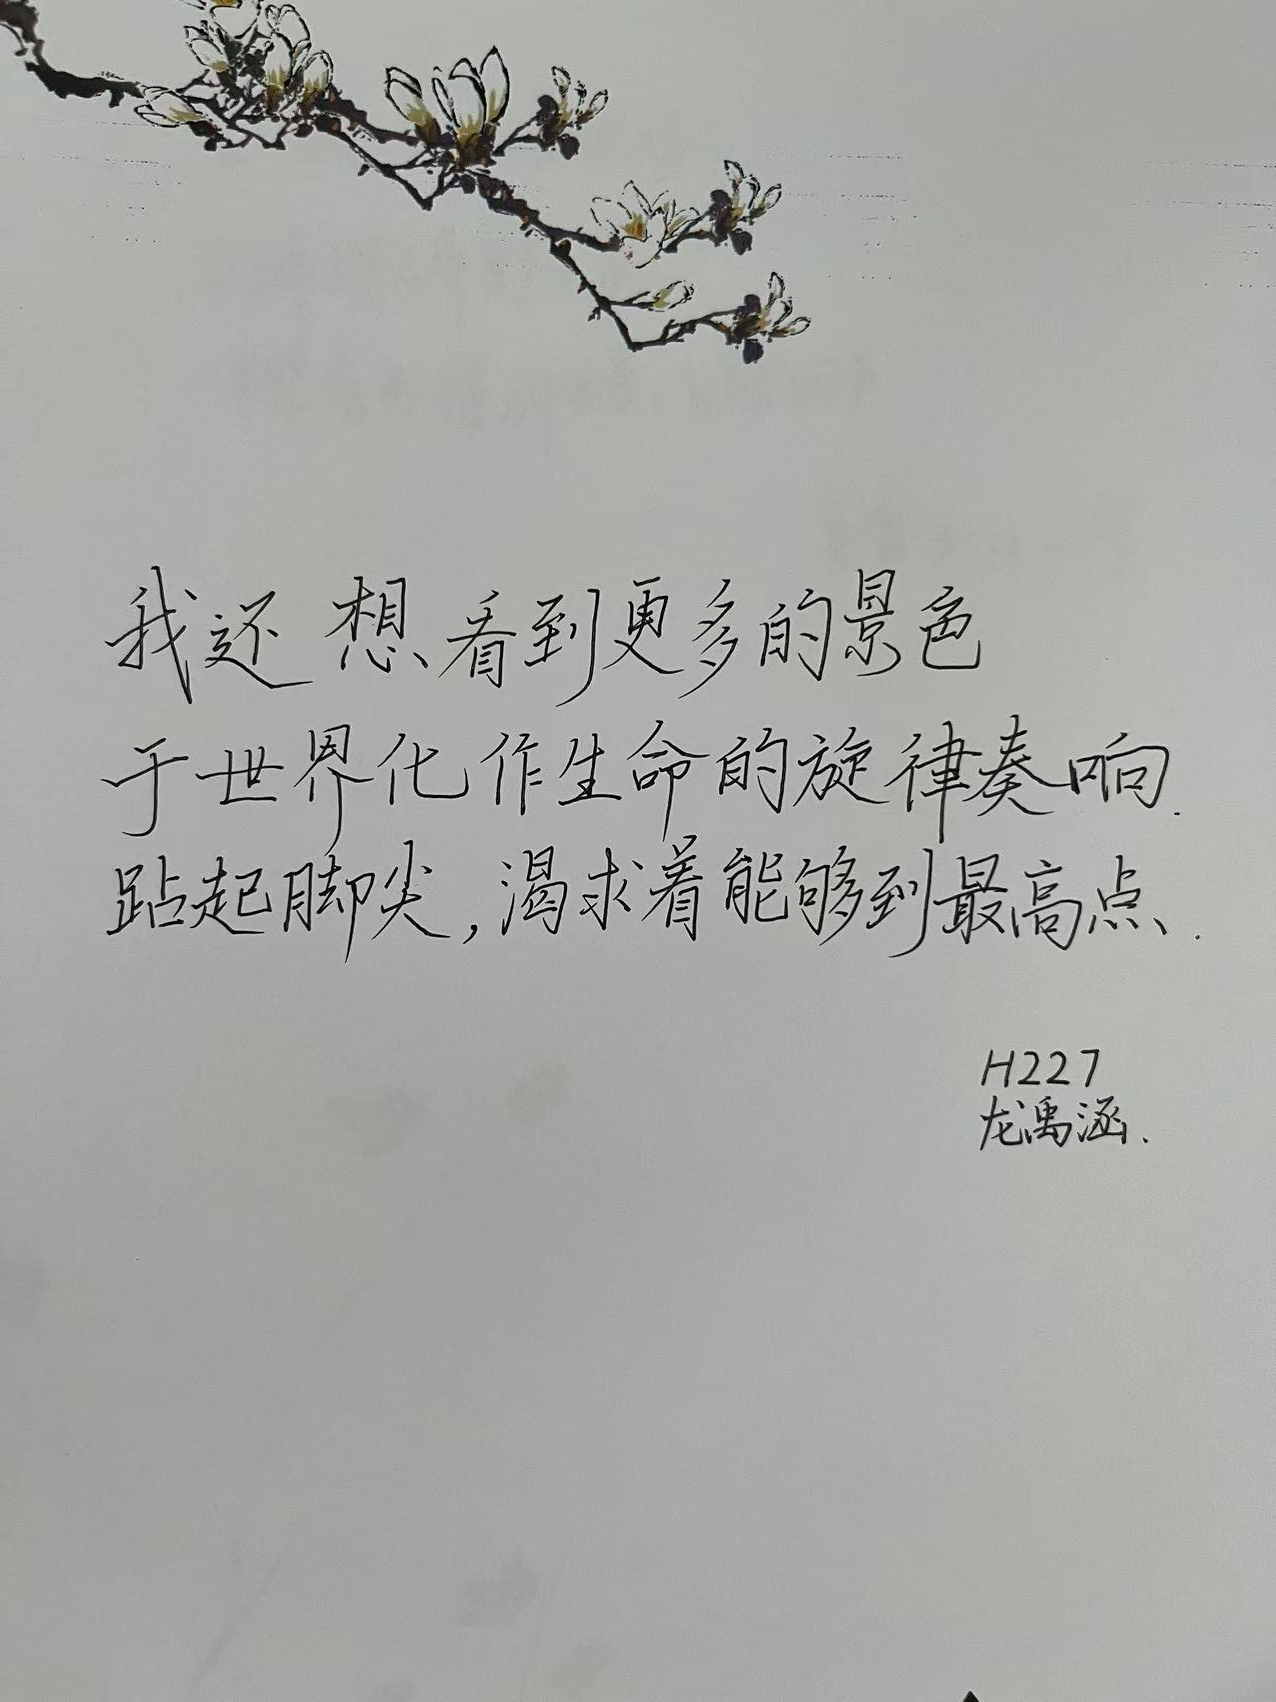 我还想看到更多的景色
于世界化作生命的旋律奏响.
跕起脚尖,渴求着能够到最高点.
H227
龙禹涵.